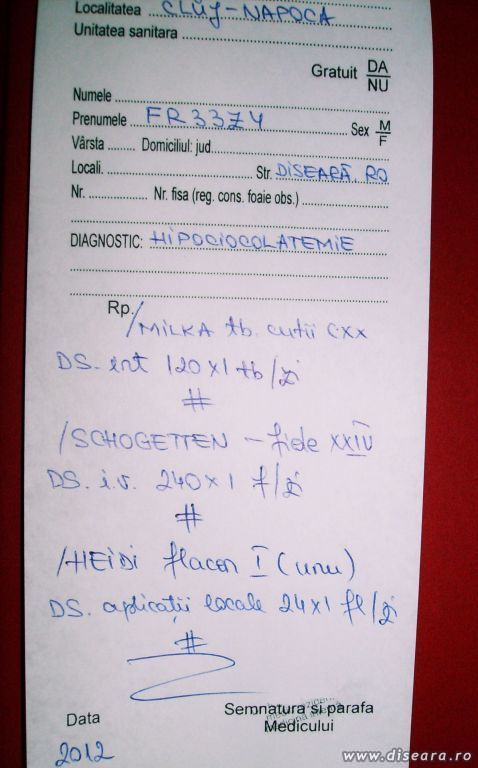 Localitatea CLUJ-NAPOCA
Unitatea sanitara
Gratuit DA
NU
Numele
Prenumele FR3374 Sex M
F
Vârsta Domiciliul: jud.
Locali. Str. DISEARĂ.RO
Nr. Nr. fisa (reg. cons. foaie obs.)
DIAGNOSTIC: HIPOCIOCOLATEMIE
Rp.
/MILKA tb. cutii CXX
DS. int 120x1 tb/zi
#
/SCHOGETTEN - fiole XXIV
DS. i.v. 240x1 f/zi
#
/HEIDI flacon I (unu)
DS. aplicații locale 24x1 fl/zi
#
Data
Semnatura si parafa
Medicului
2012
www.diseara.ro